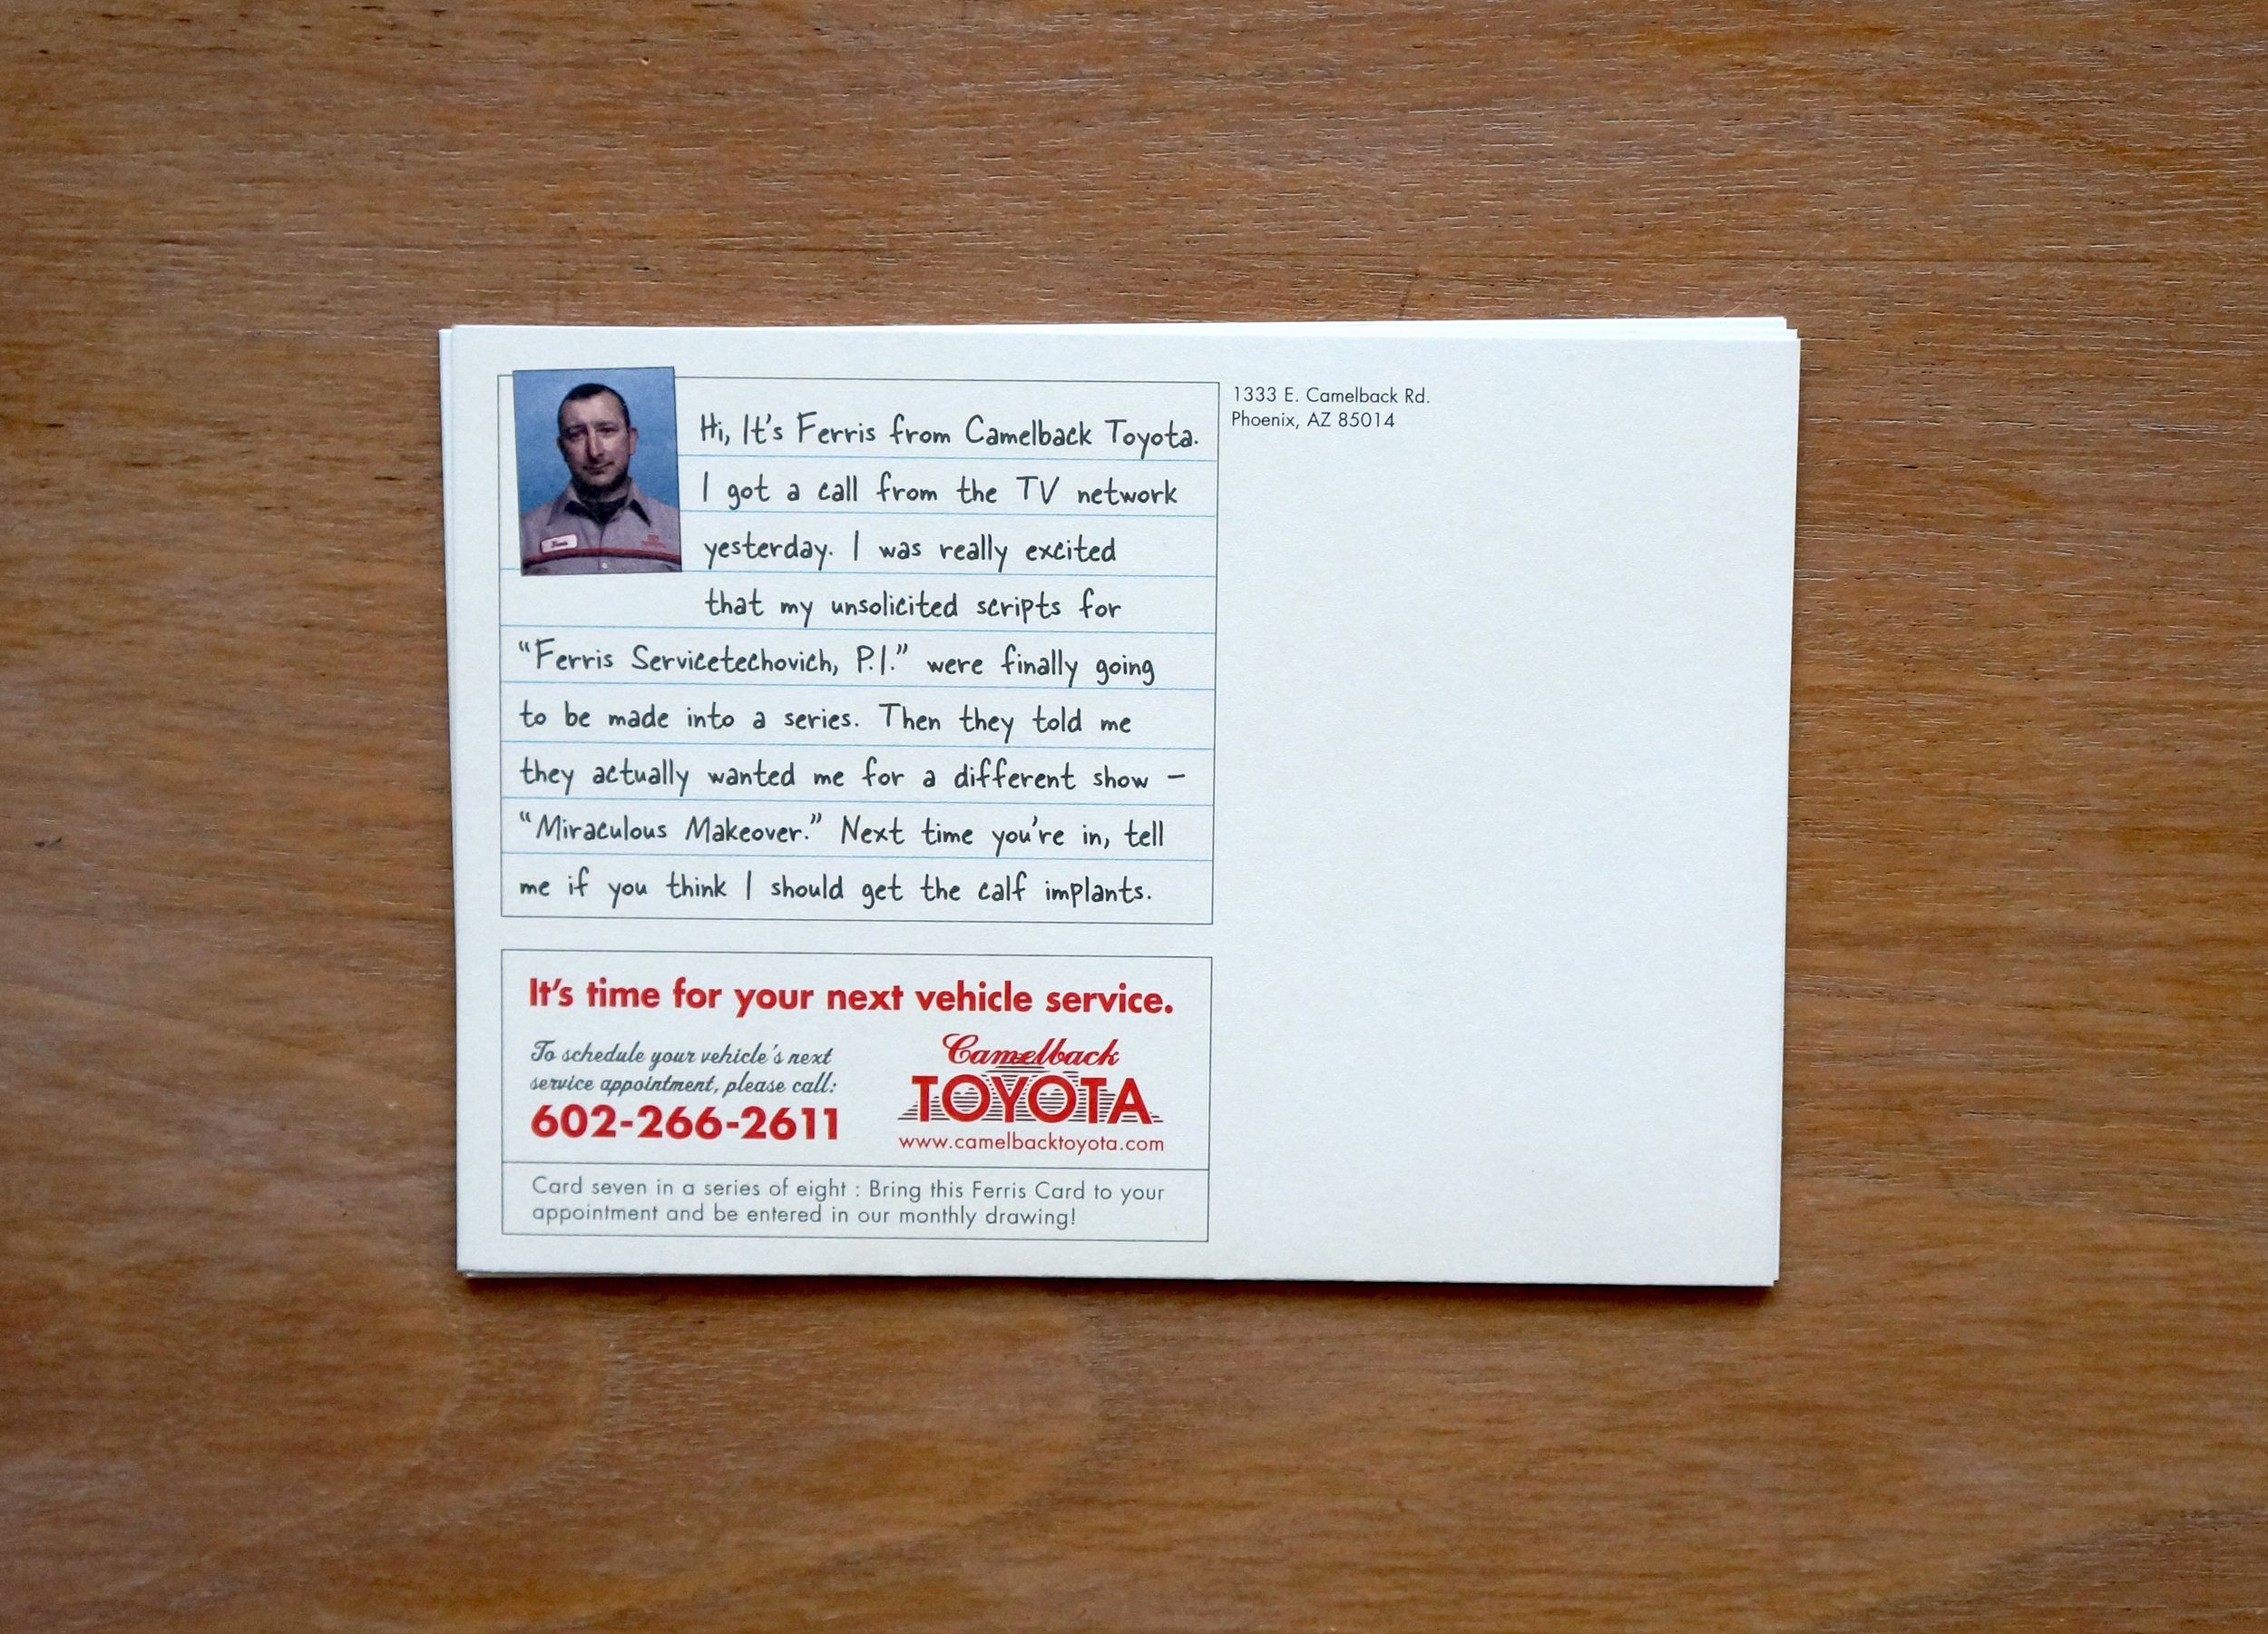 Hi, It's Ferris from Camelback Toyota.
I got a call from the TV network
yesterday. I was really excited
that my unsolicited scripts for
“Ferris Servicetechovich, P.I.” were finally going
to be made into a series. Then they told me
they actually wanted me for a different show –
“Miraculous Makeover.” Next time you're in, tell
me if you think I should get the calf implants.
1333 E. Camelback Rd.
Phoenix, AZ 85014
It's time for your next vehicle service.
To schedule your vehicle's next
service appointment, please call:
602-266-2611
Camelback
TOYOTA
www.camelbacktoyota.com
Card seven in a series of eight : Bring this Ferris Card to your
appointment and be entered in our monthly drawing!